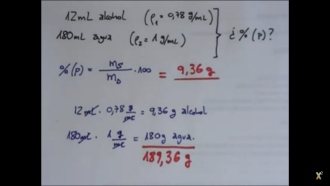 12mL alcohol (ρ₁ = 0,78 g/mL)
180mL agua (ρ₂ = 1 g/mL)
¿ % (p) ?
% (p) = ms/mD · 100 = 9,36 g
12 mL · 0,78 g/mL = 9,36 g alcohol
180mL · 1 g/mL = 180g agua
189,36 g